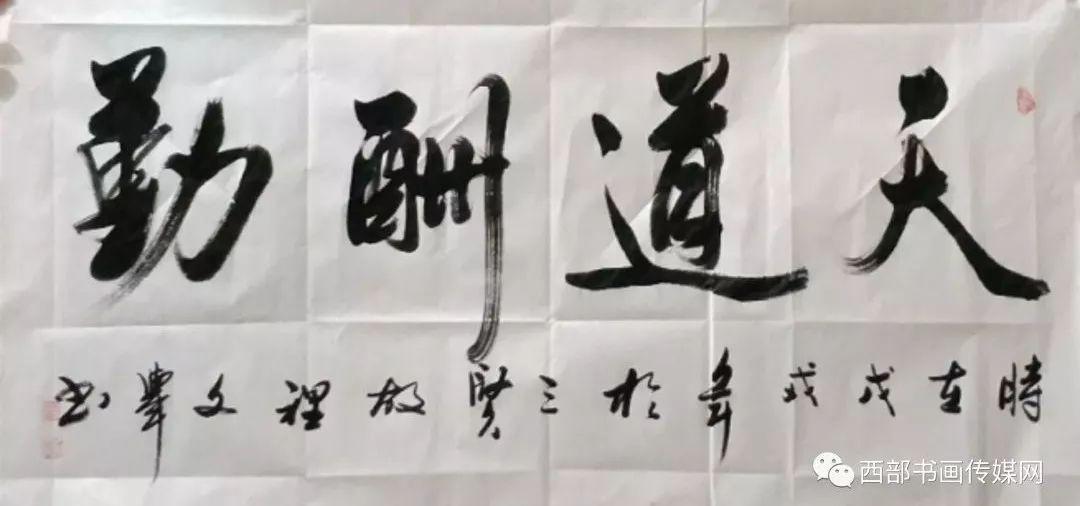 天道酬勤
時在戊戌年於三賢故裡文舉书
西部书画传媒网